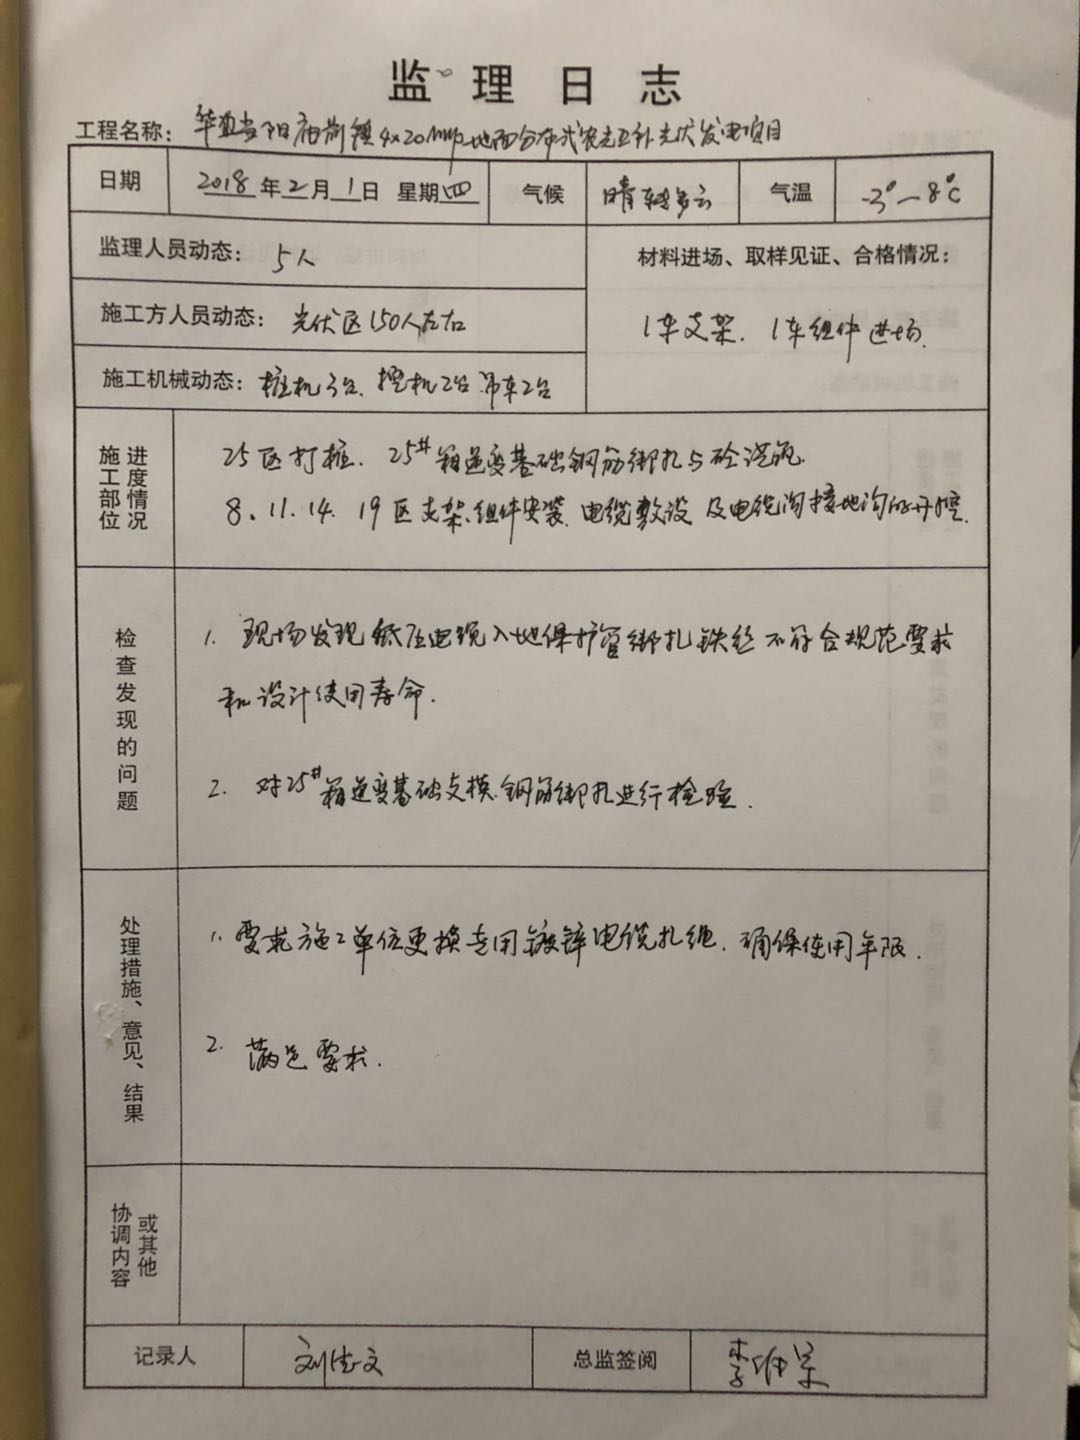 监理日志
工程名称: 华电当阳庙前镇4×20MWp地面分布式农光互补光伏发电项目
日期 2018年2月1日 星期四 气候 晴转多云 气温 -3°—8℃
监理人员动态: 5人
材料进场、取样见证、合格情况:
施工方人员动态: 光伏区150人左右
1车支架、1车组件进场.
施工机械动态: 桩机3台、挖机2台 吊车2台
施工部位进度情况
25区打桩、25#箱逆变基础钢筋绑扎与砼浇筑.
8、11、14、19区支架、组件安装、电缆敷设及电缆沟接地沟的开挖.
检查发现的问题
1. 现场发现低压电缆入地保护管绑扎铁丝不符合规范要求
和设计使用寿命.
2. 对25#箱逆变基础支模、钢筋绑扎进行检验.
处理措施、意见、结果
1. 要求施工单位更换专用镀锌电缆扎绳、确保使用年限.
2. 满足要求.
协调内容或其他
记录人 刘 文 总监签阅 李